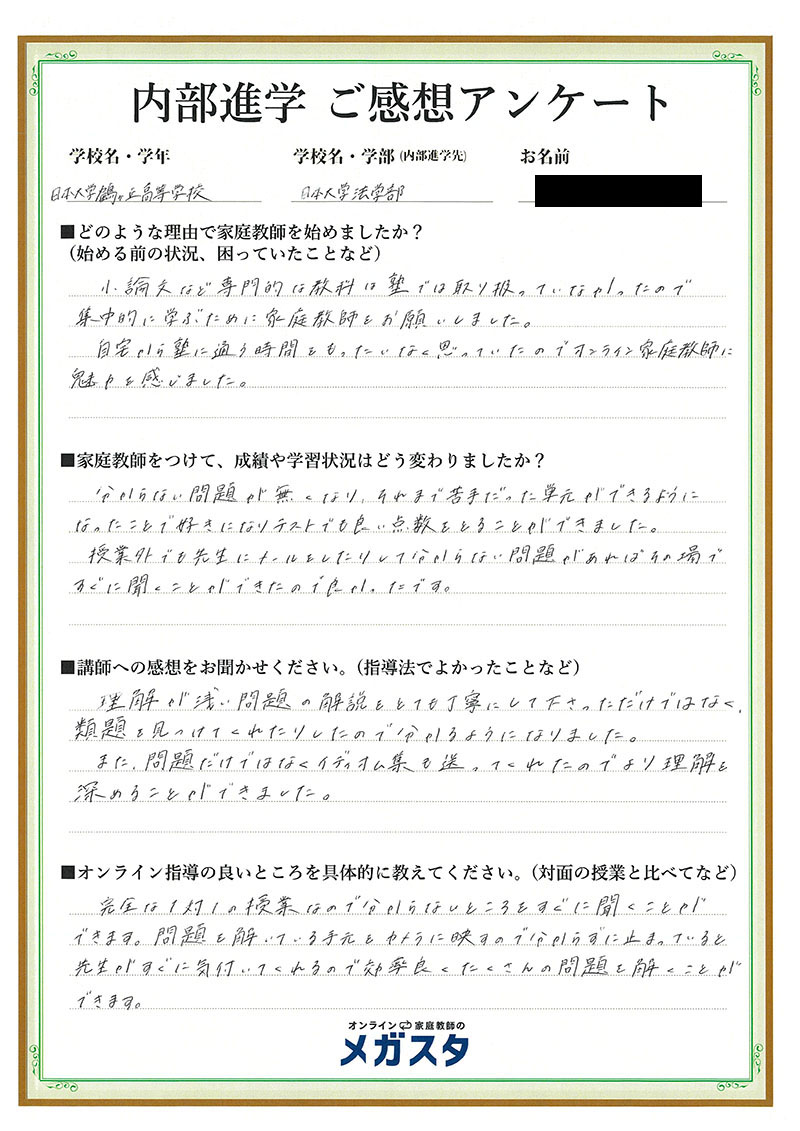 内部進学 ご感想アンケート
学校名・学年 学校名・学部 (内部進学先) お名前
日本大学鶴ヶ丘高等学校 日本大学法学部
■どのような理由で家庭教師を始めましたか？
（始める前の状況、困っていたことなど）
小論文など専門的な教科は塾では取り扱っていなかったので
集中的に学ぶために家庭教師をお願いしました。
自宅から塾に通う時間をもったいなく思っていたのでオンライン家庭教師に
魅力を感じました。
■家庭教師をつけて、成績や学習状況はどう変わりましたか？
分からない問題が無くなり、それまで苦手だった単元ができるように
なったことで好きになりテストでも良い点数をとることができました。
授業外でも先生にメールをしたりして分からない問題があればその場で
すぐに聞くことができたので良かったです。
■講師への感想をお聞かせください。（指導法でよかったことなど）
理解が浅い問題の解説をとても丁寧にして下さっただけではなく、
類題を見つけてくれたりしたので分かるようになりました。
また、問題だけではなくイディオム集も送ってくれたのでより理解を
深めることができました。
■オンライン指導の良いところを具体的に教えてください。（対面の授業と比べてなど）
完全な1対1の授業なので分からないところをすぐに聞くことが
できます。問題を解いている手元をカメラに映すので分からずに止まっていると
先生がすぐに気付いてくれるので効率良くたくさんの問題を解くことが
できます。
オンライン家庭教師の
メガスタ